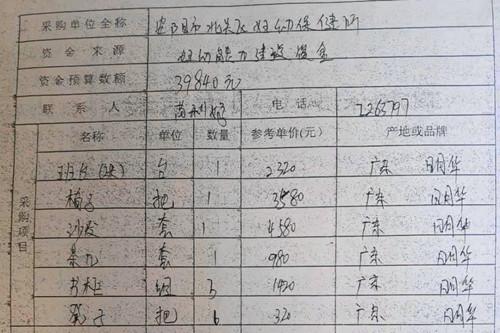 采购单位全称 安阳市北关区妇幼保健所
资金来源 妇幼能力建设资金
资金预算数额 39840元
联系人 电话 2263797
采购项目
名称 单位 数量 参考单价(元) 产地或品牌
班台 台 1 2320 广东 月华
椅子 把 1 3580 广东 月华
沙发 套 1 4580 广东 月华
茶几 套 1 980 广东 月华
书柜 组 5 广东 月华
把 6 320 广东 月华